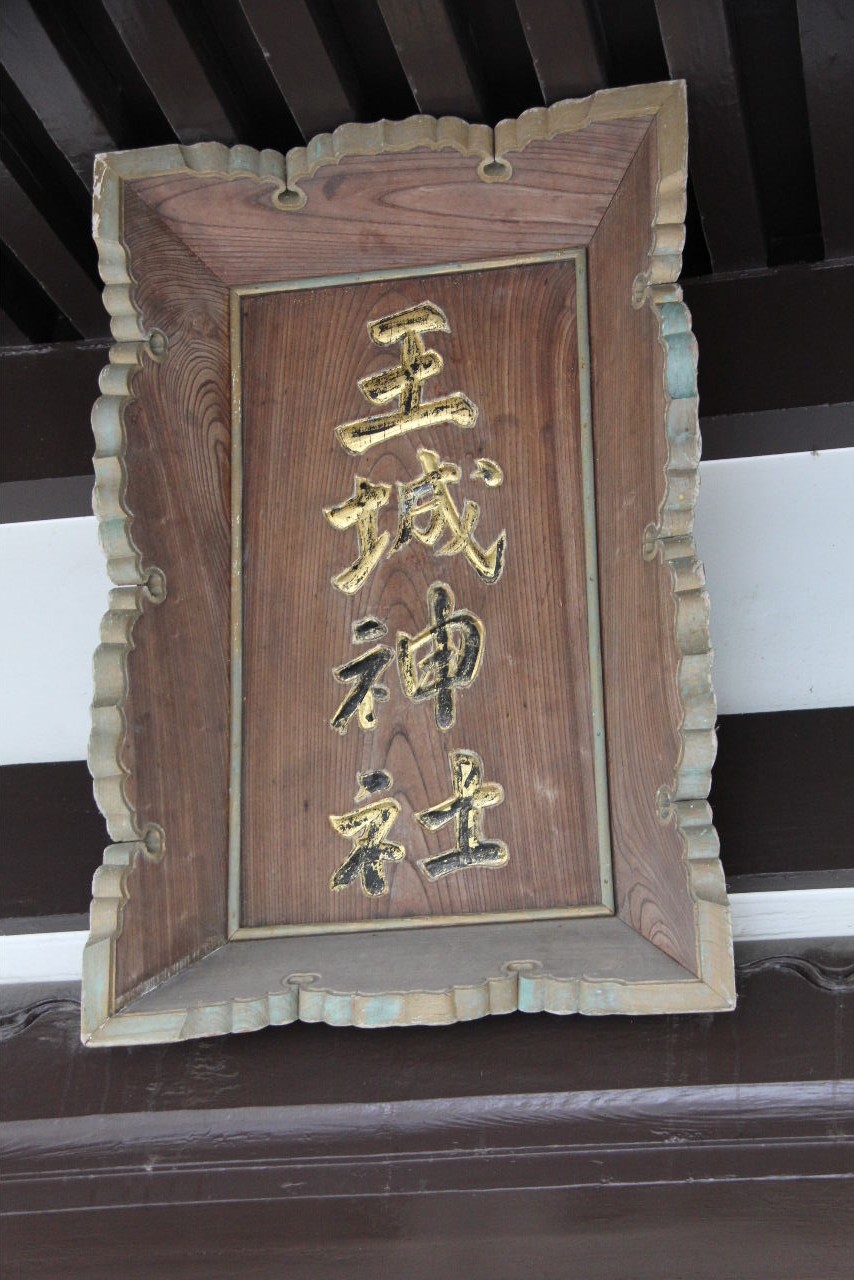 王城神社